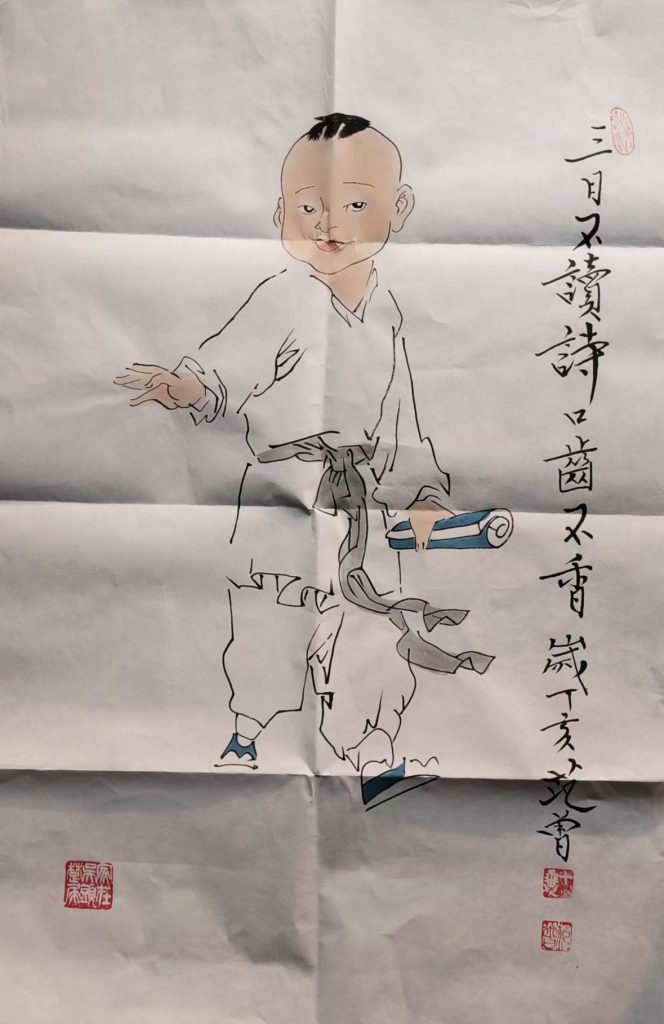 三日不讀詩口齒不香 歲丁亥范曾